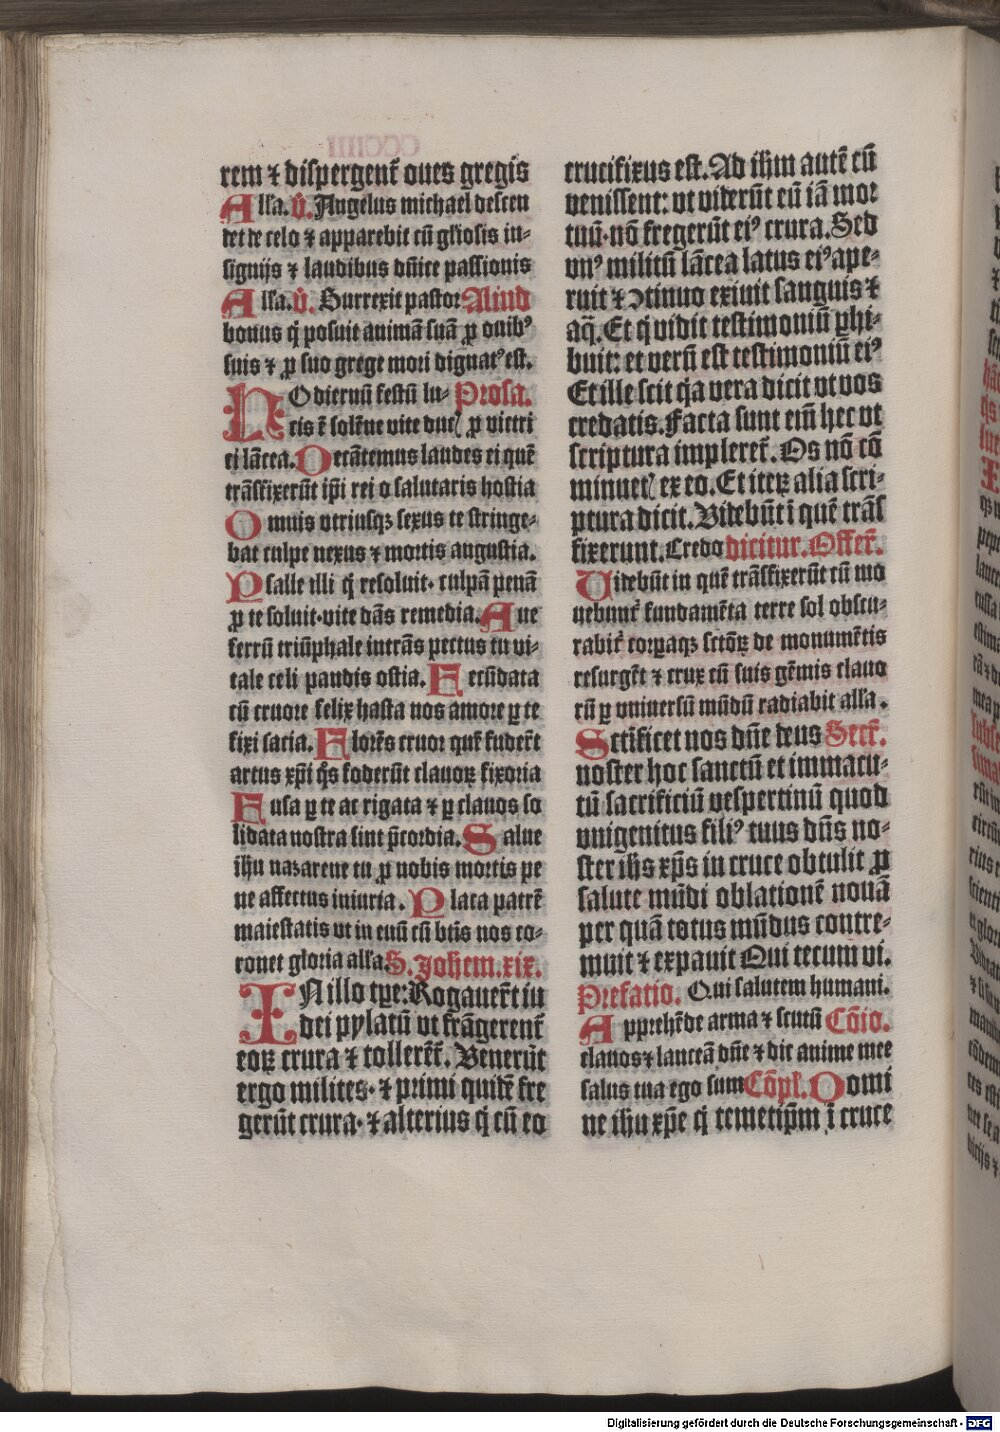 rem ⁊ diſpergent̃ oues gregis
Alľa. v̄. Angelus michael deſcen
det de celo ⁊ apparebit cũ gľioſis in-
ſignijs ⁊ laudibus dñice paſſionis
Alľa. v̄. Surrexit paſtor Aliud
bonus q̇ poſuit animã ſuã ꝓ ouibꝰ
ſuis ⁊ ꝓ ſuo grege mori dignatꝰ eſt.
HOdiernũ feſtũ lu- Proſa.
cis ẽ ſolẽne vite duc̃ ꝓ victri
ci lãcea. Decãtemus laudes ei quẽ
trãſfixerũt ip̃i rei o ſalutaris hoſtia
Omnis vtriuſqꝫ ſexus te ſtringe-
bat culpe nexus ⁊ mortis anguſtia.
Pſalle illi q̇ reſoluit· culpã penã
ꝓ te ſoluit·vite dãs remedia. Aue
ferrũ triũphale intrãs pectus tu vi-
tale celi pandis oſtia. Fecũdata
cũ cruore felix haſta nos amore ꝑ te
fixi ſacia. Florẽs cruor quẽ fuder̃t
artus xp̃i q̊s foderũt clauoꝝ fixoria
Fuſa ꝑ te ac rigata ⁊ ꝑ clauos ſo
lidata noſtra ſint p̃cordia. Salue
iħu nazarene tu ꝓ nobis mortis pe
ne affectus iniuria. Placa patrẽ
maieſtatis vt in euũ cũ bt̃is nos co-
ronet gloria alľa S. Joħem. xix.
IN illo tꝑe: Rogauer̃t iu
dei pylatũ vt frãgerent̃
eoꝝ crura ⁊ tollerẽt̃. Venerũt
ergo milites· ⁊ primi quidẽ fre
gerũt crura· ⁊ alterius q̇ cũ eo
crucifixus eſt. Ad iħm autẽ cũ
veniſſent: vt viderũt eũ iã mor
tuũ·nõ fregerũt eiꝰ crura. Sed
vnꝰ militũ lãcea latus eiꝰ ape-
ruit ⁊ ꝯtinuo exiuit ſanguis ⁊
aq̃. Et q̇ vidit teſtimoniũ ꝑhi-
buit: et verũ eſt teſtimoniũ eiꝰ
Et ille ſcit q̇a vera dicit vt vos
credatis. Facta ſunt eĩ hec vt
ſcriptura impleret̃. Os nõ cõ
minuet̃ ex eo. Et iteꝝ alia ſcri-
ptura dicit. Videbũt ĩ quẽ trãſ
fixerunt. Credo dicitur. Offer̃.
Videbũt in quẽ trãſfixerũt cũ mo
uebunt̃ fundamẽta terre ſol obſcu-
rabit̃ corꝑaqꝫ ſctõꝝ de monumẽtis
reſurgẽt ⁊ crux cũ ſuis gẽmis clauo
rũ ꝑ vniuerſũ mũdũ radiabit alľa.
Sctificet nos dñe deus Secr̃.
noſter hoc ſanctũ et immacu-
tũ ſacrificiũ veſpertinũ quod
vnigenitus filiꝰ tuus dñs no-
ſter iħs xp̃s in cruce obtulit ꝓ
ſalute mũdi oblationẽ nouã
per quã totus mũdus contre-
muit ⁊ expauit Qui tecum vi.
Prefatio. Qui ſalutem humani.
Apprehẽde arma ⁊ ſcutũ Cõio.
clauos ⁊ lanceã dñe ⁊ dic anime mee
ſalus tua ego ſum Cõpl. Domi
ne iħu xp̃e q̇ temetip̃m ĩ cruce
Digitalisierung gefördert durch die Deutsche Forschungsgemeinschaft - DFG